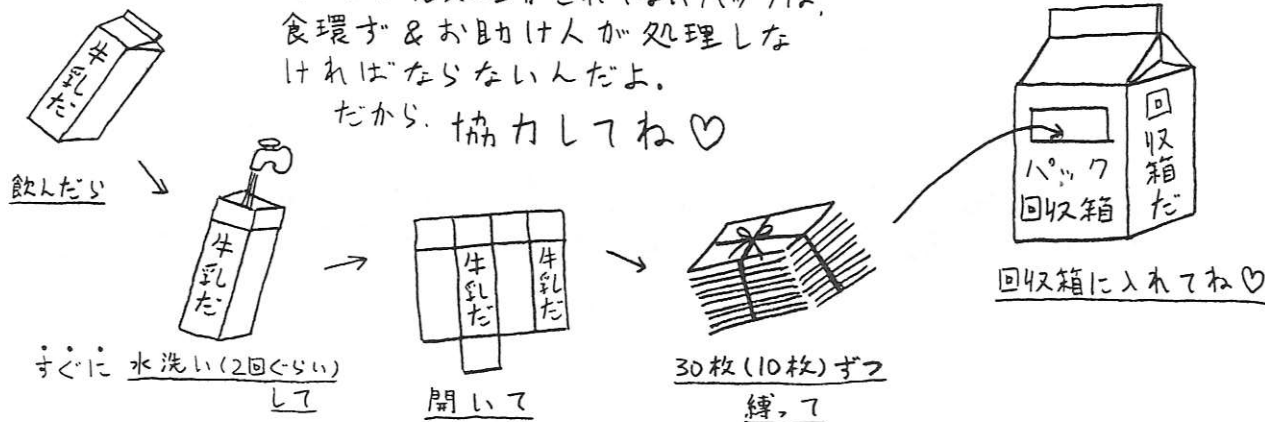 食環ず&お助け人が処理しな
ければならないんだよ.
だから、協力してね♡
牛乳だ
飲んだら
牛乳だ
すぐに 水洗い(2回ぐらい)
して
牛乳だ
牛乳だ
開いて
30枚(10枚)ずつ
縛って
パック
回収箱
回収箱だ
回収箱に入れてね♡